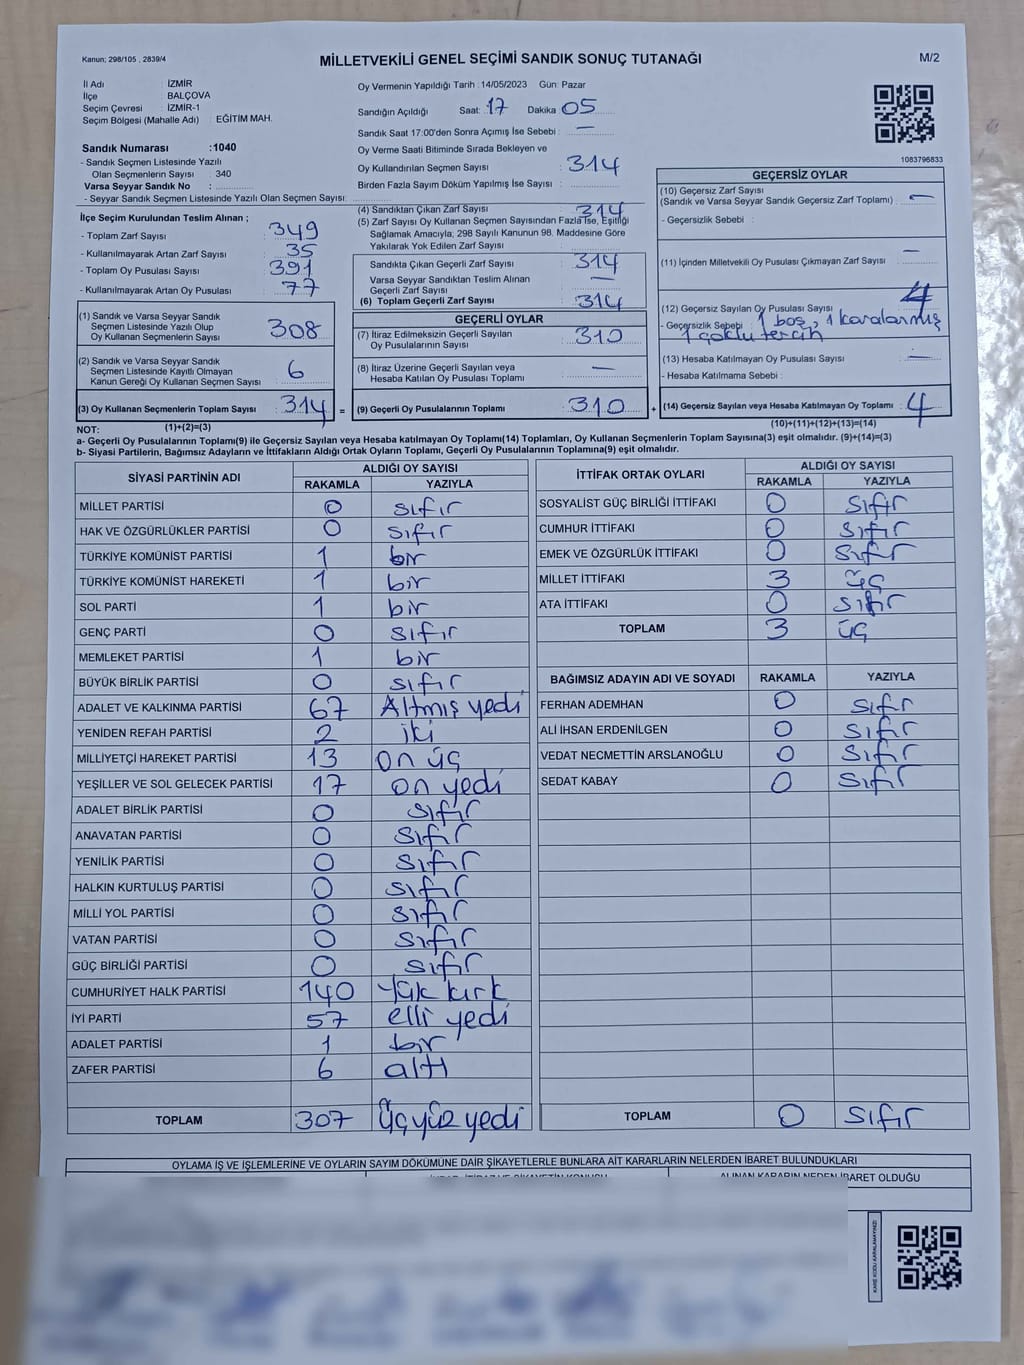 Kanun; 298/105 , 2839/4
MİLLETVEKİLİ GENEL SEÇİMİ SANDIK SONUÇ TUTANAĞI
M/2
İl Adı : İZMİR
İlçe : BALÇOVA
Seçim Çevresi : İZMİR-1
Seçim Bölgesi (Mahalle Adı) : EĞİTİM MAH.
Sandık Numarası :1040
- Sandık Seçmen Listesinde Yazılı
Olan Seçmenlerin Sayısı : 340
Varsa Seyyar Sandık No :
- Seyyar Sandık Seçmen Listesinde Yazılı Olan Seçmen Sayısı:
Oy Vermenin Yapıldığı Tarih : 14/05/2023 Gün: Pazar
Sandığın Açıldığı Saat: 17 Dakika 05
Sandık Saat 17:00'den Sonra Açımış İse Sebebi : —
Oy Verme Saati Bitiminde Sırada Bekleyen ve
Oy Kullandırılan Seçmen Sayısı : 314
Birden Fazla Sayım Döküm Yapılmış İse Sayısı :
1083796833
İlçe Seçim Kurulundan Teslim Alınan ;
- Toplam Zarf Sayısı : 349
- Kullanılmayarak Artan Zarf Sayısı : 35
- Toplam Oy Pusulası Sayısı : 391
- Kullanılmayarak Artan Oy Pusulası : 77
(1) Sandık ve Varsa Seyyar Sandık
Seçmen Listesinde Yazılı Olup
Oy Kullanan Seçmenlerin Sayısı : 308
(2) Sandık ve Varsa Seyyar Sandık
Seçmen Listesinde Kayıtlı Olmayan
Kanun Gereği Oy Kullanan Seçmen Sayısı : 6
(3) Oy Kullanan Seçmenlerin Toplam Sayısı : 314 =
(1)+(2)=(3)
(4) Sandıktan Çıkan Zarf Sayısı : 314
(5) Zarf Sayısı Oy Kullanan Seçmen Sayısından Fazla İse, Eşitliği
Sağlamak Amacıyla, 298 Sayılı Kanunun 98. Maddesine Göre
Yakılarak Yok Edilen Zarf Sayısı :
Sandıkta Çıkan Geçerli Zarf Sayısı : 314
Varsa Seyyar Sandıktan Teslim Alınan
Geçerli Zarf Sayısı : —
(6) Toplam Geçerli Zarf Sayısı : 314
GEÇERLİ OYLAR
(7) İtiraz Edilmeksizin Geçerli Sayılan
Oy Pusulalarının Sayısı : 310
(8) İtiraz Üzerine Geçerli Sayılan veya
Hesaba Katılan Oy Pusulası Toplamı : —
(9) Geçerli Oy Pusulalarının Toplamı : 310 +
GEÇERSİZ OYLAR
(10) Geçersiz Zarf Sayısı
(Sandık ve Varsa Seyyar Sandık Geçersiz Zarf Toplamı) : —
- Geçersizlik Sebebi :
(11) İçinden Milletvekili Oy Pusulası Çıkmayan Zarf Sayısı : —
(12) Geçersiz Sayılan Oy Pusulası Sayısı : 4
- Geçersizlik Sebebi : 1 boş, 1 karalanmış
1 çoklu tercih
(13) Hesaba Katılmayan Oy Pusulası Sayısı : —
- Hesaba Katılmama Sebebi :
(14) Geçersiz Sayılan veya Hesaba Katılmayan Oy Toplamı : 4
(10)+(11)+(12)+(13)=(14)
NOT:
a- Geçerli Oy Pusulalarının Toplamı(9) ile Geçersiz Sayılan veya Hesaba katılmayan Oy Toplamı(14) Toplamları, Oy Kullanan Seçmenlerin Toplam Sayısına(3) eşit olmalıdır. (9)+(14)=(3)
b- Siyasi Partilerin, Bağımsız Adayların ve İttifakların Aldığı Ortak Oyların Toplamı, Geçerli Oy Pusulalarının Toplamına(9) eşit olmalıdır.
SİYASİ PARTİNİN ADI ALDIĞI OY SAYISI
RAKAMLA YAZIYLA
MİLLET PARTİSİ 0 sıfır
HAK VE ÖZGÜRLÜKLER PARTİSİ 0 sıfır
TÜRKİYE KOMÜNİST PARTİSİ 1 bir
TÜRKİYE KOMÜNİST HAREKETİ 1 bir
SOL PARTİ 1 bir
GENÇ PARTİ 0 sıfır
MEMLEKET PARTİSİ 1 bir
BÜYÜK BİRLİK PARTİSİ 0 sıfır
ADALET VE KALKINMA PARTİSİ 67 Altmış yedi
YENİDEN REFAH PARTİSİ 2 iki
MİLLİYETÇİ HAREKET PARTİSİ 13 on üç
YEŞİLLER VE SOL GELECEK PARTİSİ 17 on yedi
ADALET BİRLİK PARTİSİ 0 sıfır
ANAVATAN PARTİSİ 0 sıfır
YENİLİK PARTİSİ 0 sıfır
HALKIN KURTULUŞ PARTİSİ 0 sıfır
MİLLİ YOL PARTİSİ 0 sıfır
VATAN PARTİSİ 0 sıfır
GÜÇ BİRLİĞİ PARTİSİ 0 sıfır
CUMHURİYET HALK PARTİSİ 140 Yük kırk
İYİ PARTİ 57 elli yedi
ADALET PARTİSİ 1 bir
ZAFER PARTİSİ 6 altı
TOPLAM 307 Üçyüz yedi
İTTİFAK ORTAK OYLARI ALDIĞI OY SAYISI
RAKAMLA YAZIYLA
SOSYALİST GÜÇ BİRLİĞİ İTTİFAKI 0 sıfır
CUMHUR İTTİFAKI 0 sıfır
EMEK VE ÖZGÜRLÜK İTTİFAKI 0 sıfır
MİLLET İTTİFAKI 3 üç
ATA İTTİFAKI 0 sıfır
TOPLAM 3 üç
BAĞIMSIZ ADAYIN ADI VE SOYADI RAKAMLA YAZIYLA
FERHAN ADEMHAN 0 sıfır
ALİ İHSAN ERDENİLGEN 0 sıfır
VEDAT NECMETTİN ARSLANOĞLU 0 sıfır
SEDAT KABAY 0 sıfır
TOPLAM 0 sıfır
OYLAMA İŞ VE İŞLEMLERİNE VE OYLARIN SAYIM DÖKÜMÜNE DAİR ŞİKAYETLERLE BUNLARA AİT KARARLARIN NELERDEN İBARET BULUNDUKLARI
ALINAN KARARIN NEDEN İBARET OLDUĞU
KARE KODU KARALAMAYINIZ!